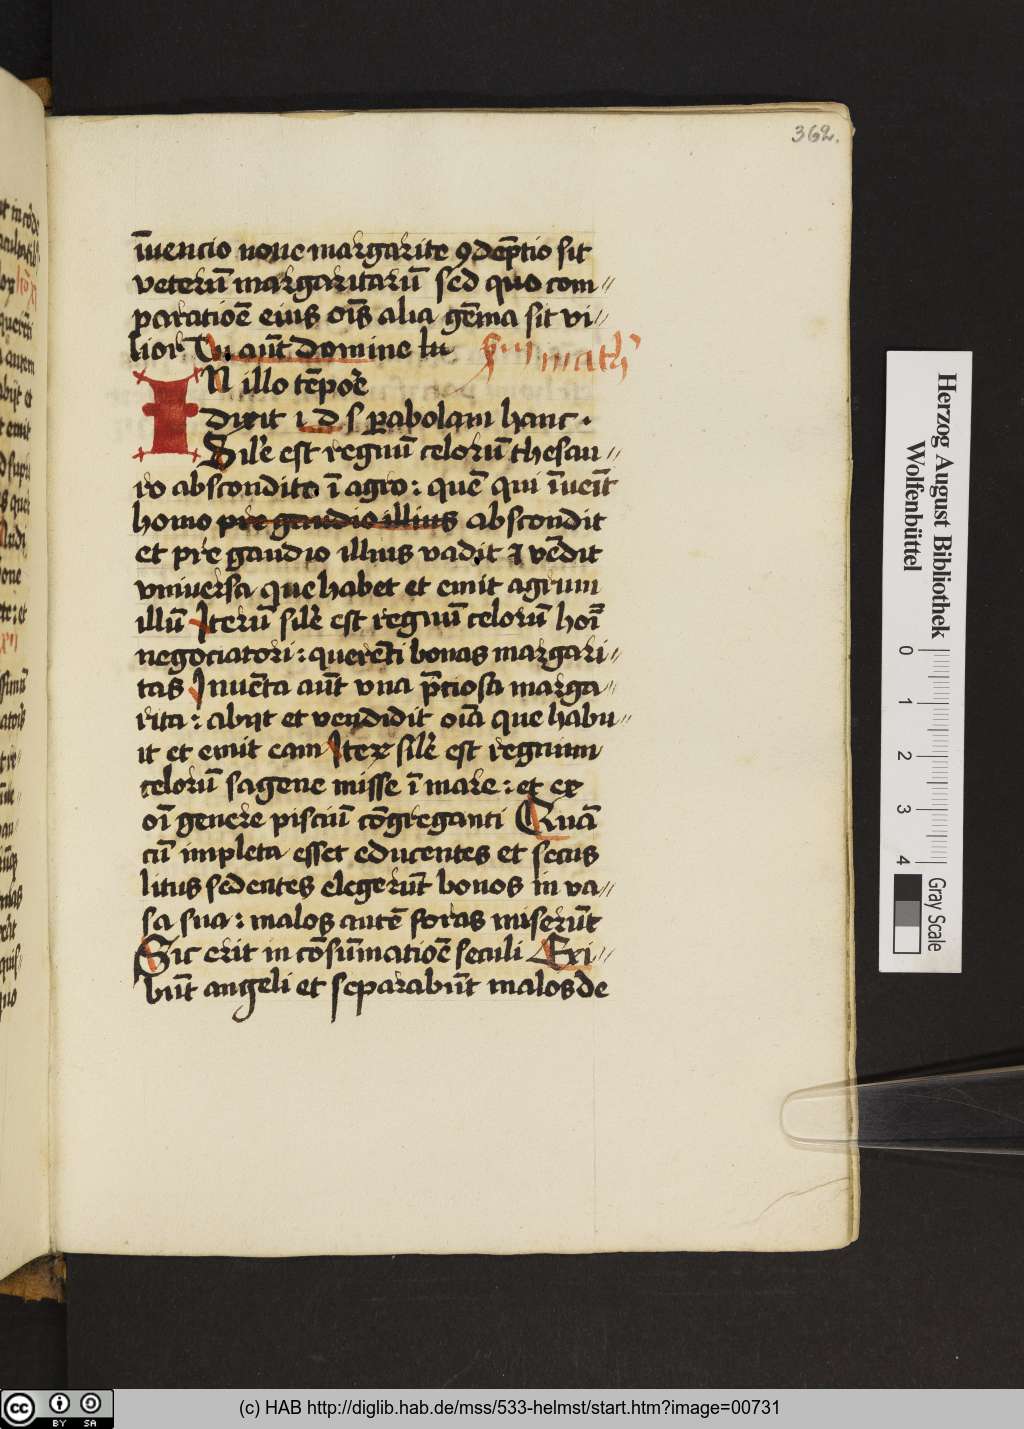 362.
īuencio noue margarite ꝯdēptio sit
veterū margaritarū sed quo com〃
paratiōe eius oīs alia gēma sit vi〃
lior Tu aūt domine tu
xiii math
IN illo tēpoꝛe
dixit i d s ꝑabolam hanc .
Sile est regnū celorū thesau〃
ro abscondito ī agro : quē qui īueīt
homo pre gaudio illius abscondit
et pre gaudio illius vadit ⁊ vēdit
vniuersa que habet et emit agrum
illū Iterū sile est regnū celorū hoī
negociatori : querēti bonas margari〃
tas Inuēta aūt vna p̄ciosa marga〃
rita : abijt et vendidit oīa que habu〃
it et emit eam Iteꝝ sile est regnum
celorū sagene misse ī mare : et ex
oī genere pisciū cōgreganti Quā
cū impleta esset educentes et secus
litus sedentes elegerūt bonos in va〃
sa sua : malos autē foras miserūt
Sic erit in cōsūmatiōe seculi Exi〃
būt angeli et separabūt malos de
Herzog August Bibliothek
Wolfenbüttel
0 1 2 3 4
Gray Scale
cc BY SA
(c) HAB http://diglib.hab.de/mss/533-helmst/start.htm?image=00731